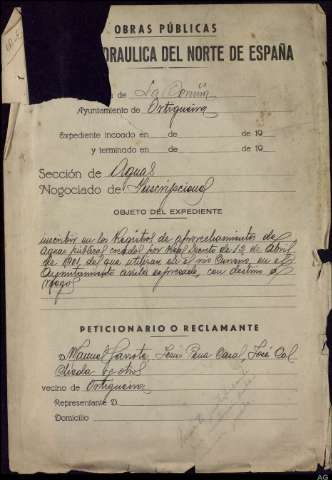 OBRAS PÚBLICAS
DRAULICA DEL NORTE DE ESPAÑA
de La Coruña
Ayuntamiento de Ortigueira
Expediente incoado en de de 19
y terminado en de de 19
Sección de Aguas
Negociado de Inscripciones
OBJETO DEL EXPEDIENTE
inscribir en los Registros de aprovechamientos de
aguas públicas creados por Real Decreto de 12 de Abril
de 1901, del que utilizan en el rio en el
Ayuntamiento arriba expresado, con destino a
riego
PETICIONARIO O RECLAMANTE
D. Manuel José Pena José
y otros
vecino de Ortigueira
Representante D.
Domicilio
AG